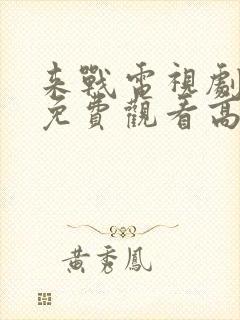 来戰電視劇
免費觀看高
黃秀鳳